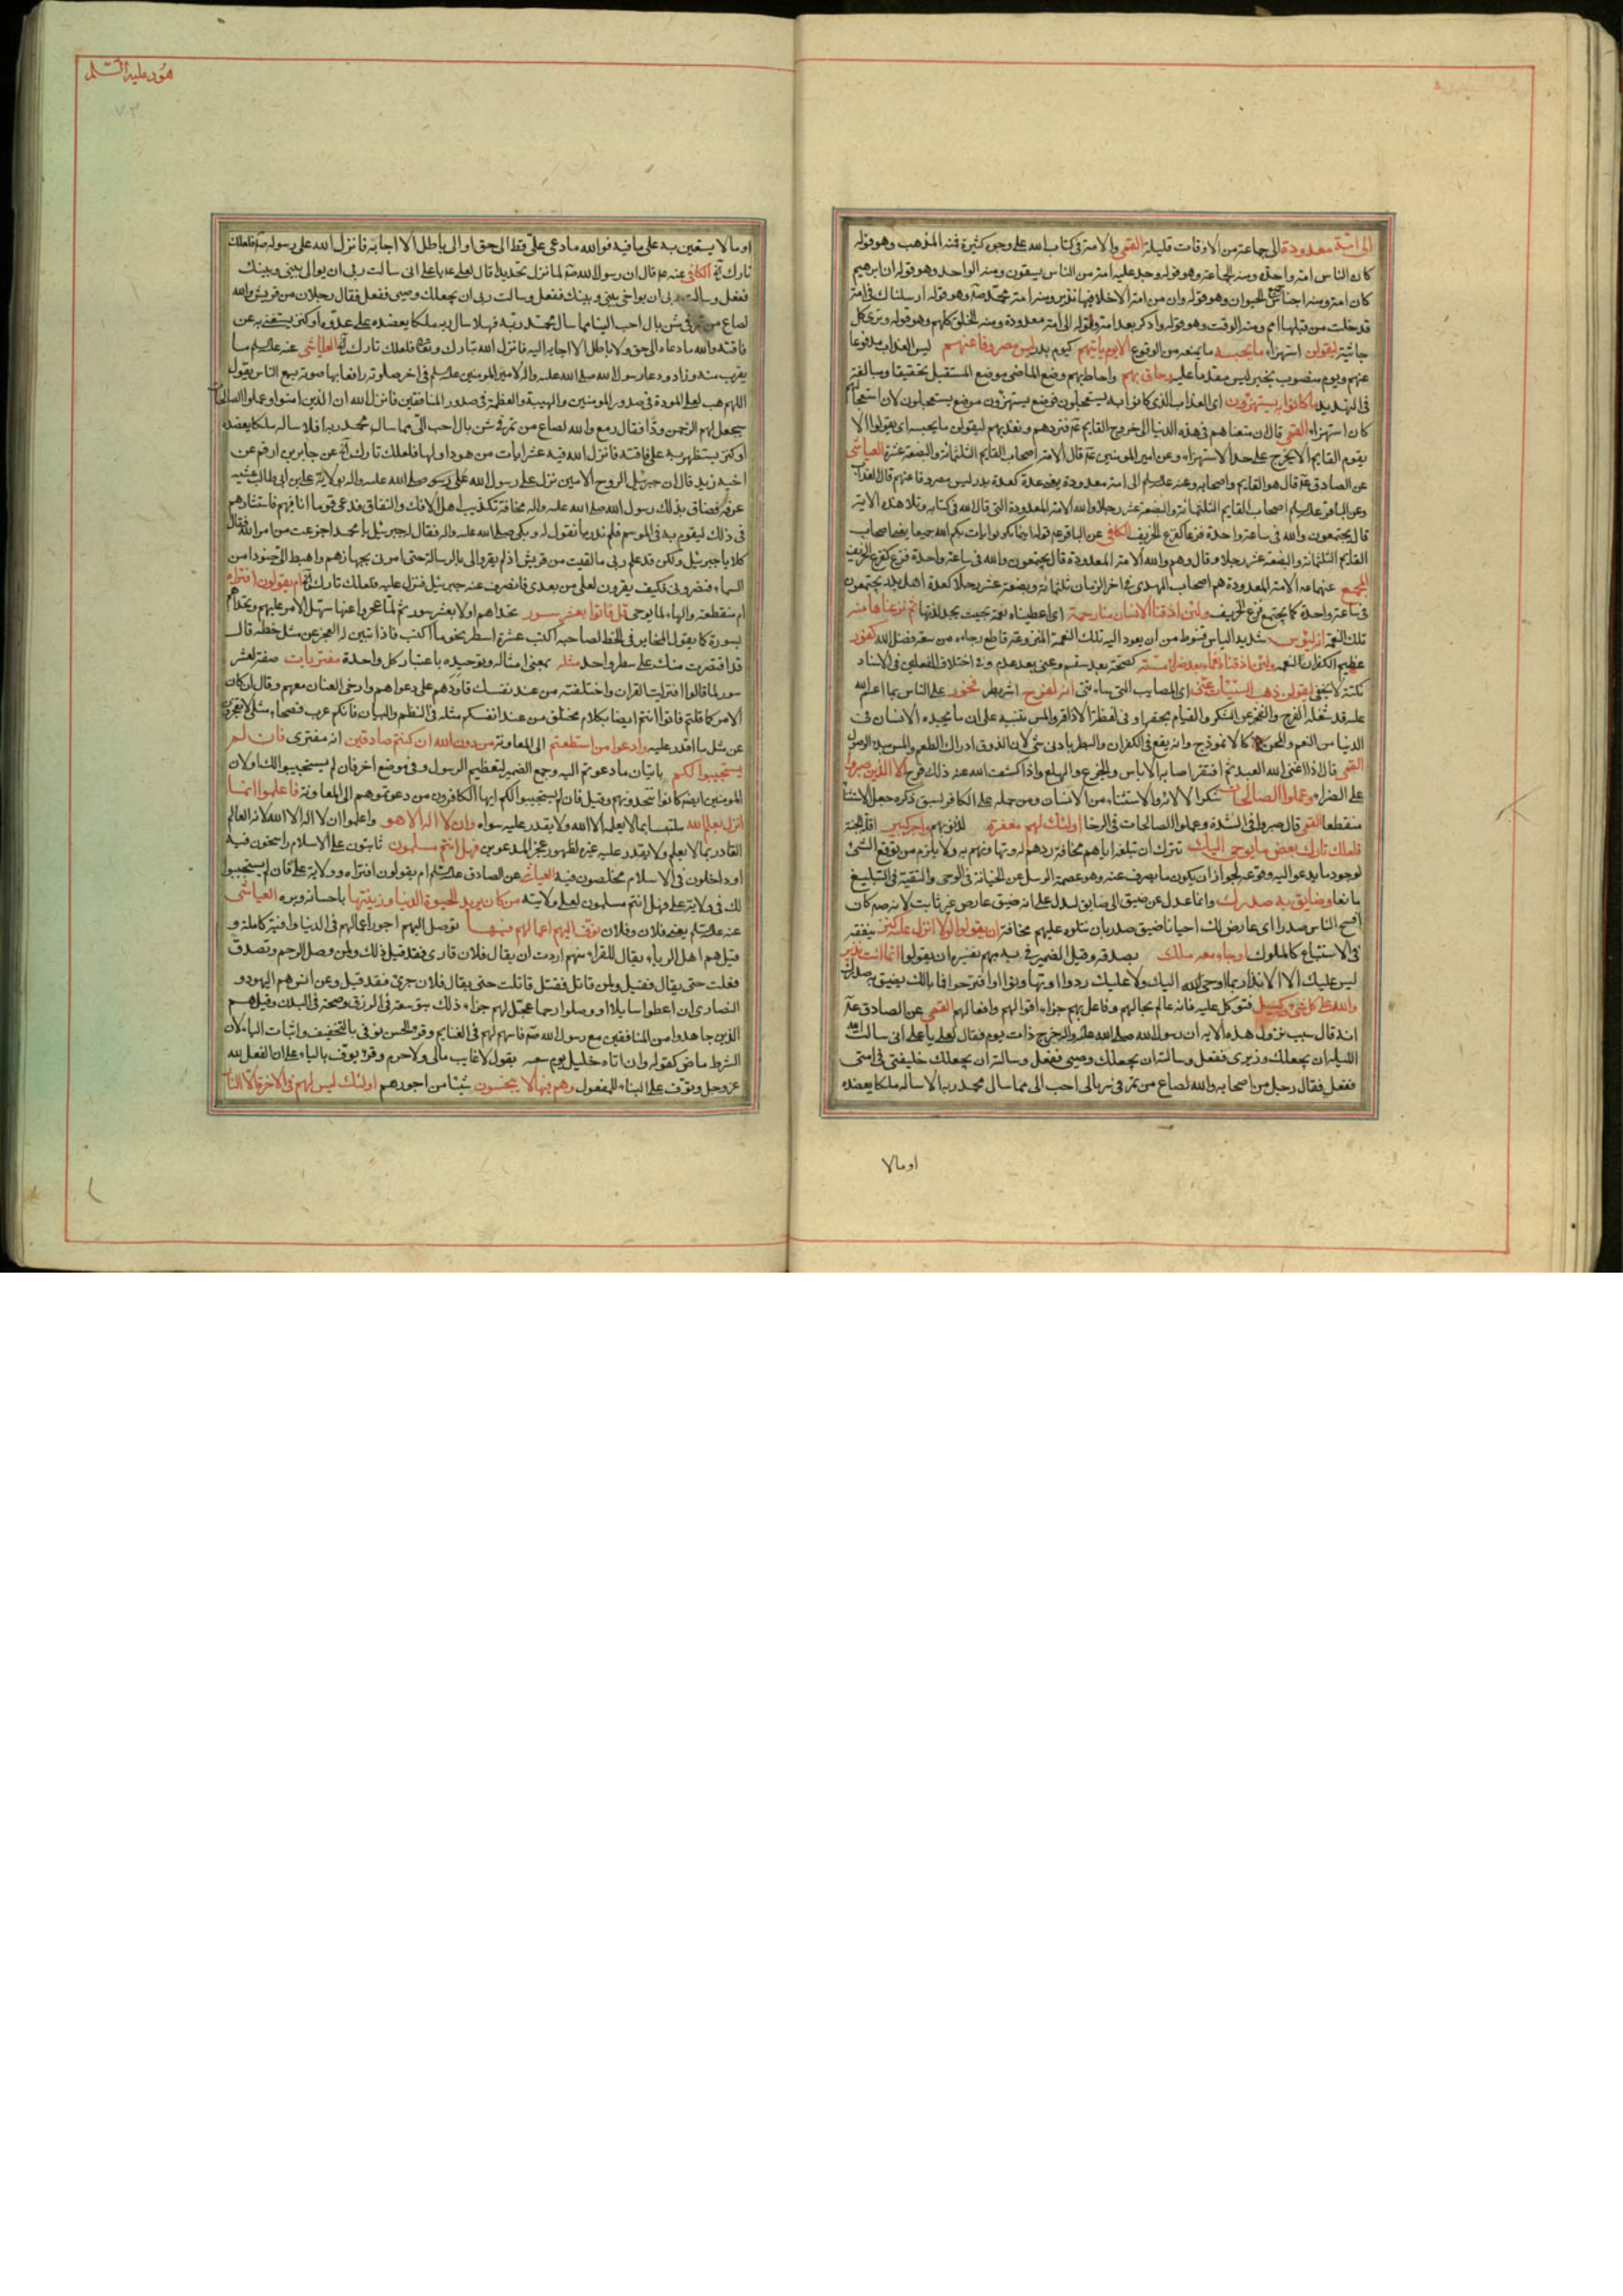 الى امّة معدودة الى جماعة من الاوقات قليلة القمي والامة في كتاب الله على وجوه كثيرة فمنه المذهب وهو قوله
كان الناس امة واحدة ومنه الجماعة وهو قوله وجد عليه امة من الناس يسقون ومنه الواحد وهو قوله ان ابرهيم
كان امة ومنه اجناس الحيوان وهو قوله وان من امة الا خلا فيها نذير ومنه امة محمد صه وهو قوله ارسلناك في امة
قد خلت من قبلها امم ومنه الوقت وهو قوله وادكر بعد امة وقوله الى امة معدودة ومنه الخلق كلهم وهو قوله وترى كل
جاثية ليقولن استهزاء ما يحبسه ما يمنعه من الوقوع الا يوم ياتيهم كيوم بدر ليس مصروفا عنهم ليس العذاب مدفوعا
عنهم ويوم منصوب بخبر ليس مقدما عليه وحاق بهم واحاط بهم وضع الماضي موضع المستقبل تحقيقا ومبالغة
في التهديد ما كانوا به يستهزؤن اي العذاب الذي كانوا به يستعجلون فوضع يستهزؤن موضع يستعجلون لان استعجالهم
كان استهزاء القمي قال ان متعناهم في هذه الدنيا الى خروج القايم عه فنردهم ونعذبهم ليقولن ما يحبسه اي يقولوا الا
يقوم القايم الا يخرج على حد الاستهزاء وعن امير المومنين عه قال الامة اصحاب القايم الثلثمائة والبضعة عشر العياشي
عن الصادق عه قال هو القايم واصحابه وعنه عليه السلم الى امة معدودة يعني عدة كعدة بدر ليس مصروفا عنهم قال العذاب
وعن الباقر عليه السلم اصحاب القايم الثلثمائة والبضعة عشر رجلا والله الامة المعدودة التي قال الله في كتابه وتلا هذه الاية
قال يجتمعون والله في ساعة واحدة قزعا كقزع الخريف الكافي عن الباقر عه قوله اينما تكونوا يات بكم الله جميعا يعني اصحاب
القايم الثلثمائة والبضعة عشر رجلا وقال وهم والله الامة المعدودة قال يجتمعون والله في ساعة واحدة قزع كقزع الخريف
المجمع عنهما عه الامة المعدودة هم اصحاب المهدي في اخر الزمان ثلثمائة وبضعة عشر رجلا كعدة اهل بدر يجتمعون
في ساعة واحدة كما يجتمع قزع الخريف ولئن اذقنا الانسان منا رحمة اي اعطيناه نعمة بحيث يجد لذتها ثم نزعناها منه
تلك النعمة انه ليؤس شديد الياس قنوط من ان يعود اليه تلك النعمة المنزوعة قاطع رجاءه من سعة فضل الله كفور
عظيم الكفران لنعمه ولئن اذقناه نعماء بعد ضراء مسته كصحة بعد سقم وغنى بعد عدم وفي اختلاف الفعلين في الاسناد
نكتة لا تخفى ليقولن ذهب السيئات عني اي المصايب التي ساءتني انه لفرح اشر بطر فخور على الناس بما انعم الله
عليه قد شغله الفرح والفخر عن الشكر والقيام بحقها وفي لفظة الاذاقة والمس تنبيه على ان ما يجده الانسان في
الدنيا من النعم والمحن كالانموذج وانه يقع في الكفران والبطر بادنى شئ لان الذوق ادراك الطعم والمس مبدء الوصول
القمي قال اذا اغنى الله العبد ثم افتقر اصابه الاياس والجزع والهلع واذا كشف الله عنه ذلك فرح الا الذين صبروا
على الضراء وعملوا الصالحات شكرا لالائه والاستثناء من الانسان ومن حمله على الكافر لسبق ذكره جعل الاستثنا
منقطعا القمي قال صبروا في الشدة وعملوا الصالحات في الرخا اولئك لهم مغفرة لذنوبهم واجر كبير اقله الجنة
فلعلك تارك بعض ما يوحى اليك تترك ان تبلغه اياهم مخافة ردهم له وتهاونهم به ولا يلزم من توقع الشئ
لوجود ما يدعو اليه وقوعه لجواز ان يكون ما يصرف عنه وهو عصمة الرسل عن الخيانة في الوحي والتقية في التبليغ
مانعا وضايق به صدرك وانما عدل عن ضيق الى ضايق ليدل على انه ضيق عارض غير ثابت لانه صم كان
افسح الناس صدرا اي عارض لك احيانا ضيق صدر بان تتلوه عليهم مخافة ان يقولوا لولا انزل عليه كنز ينفقه
في الاستتباع كالملوك او جاء معه ملك يصدقه وقيل الضمير في به مبهم تفسيره ان يقولوا انما انت نذير
ليس عليك الا الانذار بما اوحي اليك ولا عليك ردوا او تهاونوا او اقترحوا فما بالك يضيق به صدرك
والله على كل شئ وكيل فتوكل عليه فانه عالم بحالهم وفاعل بهم جزاء اقوالهم وافعالهم القمي عن الصادق عه
انه قال سبب نزول هذه الاية ان رسول الله صلى الله عليه واله خرج ذات يوم فقال لعلي يا علي اني سالت الله
الليلة ان يجعلك وزيري ففعل وسالته ان يجعلك وصيي ففعل وسالته ان يجعلك خليفتي في امتي
ففعل فقال رجل من اصحابه والله لصاع من تمر في شن بال احب الي مما سال محمد ربه الا ساله ملكا يعضده
او مالا
هود عليه السلم
٧٣
او مالا يستعين به على ما فيه فوالله ما دعى عليّ قط الى حق او الى باطل الا اجابه فانزل الله على رسوله صه فلعلك
تارك آه الكافي عنه عه قال ان رسول الله صه لما نزل بقديد قال لعلي عه يا علي اني سالت ربي ان يوالي بيني وبينك
ففعل وسالت ربي ان يواخي بيني وبينك ففعل وسالت ربي ان يجعلك وصيي ففعل فقال رجلان من قريش والله
لصاع من تمر في شن بال احب الينا مما سال محمد ربه فهلا سال ربه ملكا يعضده على عدوه او كنزا يستغني به عن
فاقته والله ما دعاه الى حق ولا باطل الا اجابه اليه فانزل الله تبارك وتعالى فلعلك تارك آه العياشي عنه عليه السلم ما
يقرب منه وزاد ودعا رسول الله صلى الله عليه واله لامير المومنين عليه السلم في اخر صلوته رافعا بها صوته يسمع الناس يقول
اللهم هب لعلي المودة في صدور المومنين والهيبة والعظمة في صدور المنافقين فانزل الله ان الذين امنوا وعملوا الصالحات
سيجعل لهم الرحمن ودّا فقال رمع والله لصاع من تمر في شن بال احب الي مما سال محمد ربه افلا ساله ملكا يعضده
او كنزا يستظهر به على فاقته فانزل الله فيه عشر ايات من هود اولها فلعلك تارك آه عن جابر بن ارقم عن
اخيه زيد قال ان جبرئيل الروح الامين نزل على رسول الله صلى الله عليه واله بولاية علي بن ابي طالب عشية
عرفة فضاق بذلك رسول الله صلى الله عليه واله مخافة تكذيب اهل الافك والنفاق فدعى قوما انا فيهم فاستشارهم
في ذلك ليقوم به في الموسم فلم ندر ما نقول له وبكى صلى الله عليه واله فقال له جبرئيل يا محمد اجزعت من امر الله فقال
كلا يا جبرئيل ولكن قد علم ربي ما لقيت من قريش اذ لم يقروا لي بالرسالة حتى امرني بجهادهم واهبط الي جنودا من
السماء فنصروني فكيف يقرون لعلي من بعدي فانصرف عنه جبرئيل فنزل عليه فلعلك تارك آه ام يقولون افتراه
ام منقطعة والهاء لما يوحى قل فاتوا بعشر سور تحداهم اولا بعشر سور ثم لما عجزوا عنها سهل الامر عليهم وتحداهم
بسورة كما يقول المخاير في الخط لصاحبه اكتب عشرة اسطر نحو ما اكتب فاذا تبين له العجز عن مثل خطه قال
قد اقتصرت منك على سطر واحد مثله بمعنى امثاله وتوحيده باعتبار كل واحدة مفتريات صفة لعشر
سور لما قالوا افتريت القران واختلقته من عند نفسك قاودهم على دعواهم وارخى العنان معهم وقال ان كان
الامر كما قلتم فاتوا انتم ايضا بكلام مختلق من عند انفسكم مثله في النظم والبيان فانكم عرب فصحاء مثلي لا تعجزون
عن مثل ما اقدر عليه وادعوا من استطعتم الى المعاونة من دون الله ان كنتم صادقين انه مفترى فان لم
يستجيبوا لكم باتيان ما دعوتم اليه وجمع الضمير لتعظيم الرسول وفي موضع اخر فان لم يستجيبوا لك او لان
المومنين ايضا كانوا يتحدونهم وقيل فان لم يستجيبوا لكم ايها الكافرون من دعوتموهم الى المعاونة فاعلموا انما
انزل بعلم الله ملتبسا بما لا يعلمه الا الله ولا يقدر عليه سواه وان لا اله الا هو واعلموا ان لا اله الا الله لانه العالم
القادر بما لا يعلم ولا يقدر عليه غيره لظهور عجز المدعوين فهل انتم مسلمون ثابتون على الاسلام راسخون فيه
او داخلون في الاسلام مخلصون فيه العياشي عن الصادق عليه السلم ام يقولون افتراه وولاية علي فان لم يستجيبوا
لك في ولاية علي فهل انتم مسلمون لعلي ولايته من كان يريد الحيوة الدنيا وزينتها باحسانه وبره العياشي
عنه عليه السلم يعني فلان وفلان نوف اليهم اعمالهم فيها نوصل اليهم اجور اعمالهم في الدنيا وافية كاملة و
قيل هم اهل الرياء يقال للقراء منهم اردت ان يقال فلان قارئ فقد قيل ذلك ولمن وصل الرحم وتصدق
فعلت حتى يقال فقيل ولمن قاتل فقتل قاتلت حتى يقال فلان جرئ فقد قيل وعن انس هم اليهود و
النصارى ان اعطوا سايلا او وصلوا رحما عجل لهم جزاء ذلك بتوسعة في الرزق وصحة في البدن وقيل هم
الذين جاهدوا من المنافقين مع رسول الله صه فاسهم لهم في الغنايم وقرء الحسن نوفي بالتخفيف واثبات الياء لان
الشرط ماض كقوله وان اتاه خليل يوم سعبه يقول لا غايب مالي ولا حرم وقرئ يوف بالياء على ان الفعل لله
عز وجل وتوف على البناء للمفعول وهم فيها لا يبخسون شيئا من اجورهم اولئك ليس لهم في الاخرة الا النار